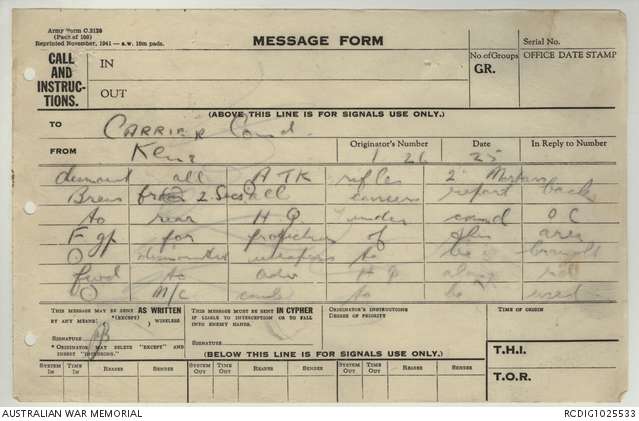 Army Form C.2128
(Pads of 100)
Reprinted November, 1941 — s.w. 10m pads.
MESSAGE FORM
Serial No.
CALL
AND
INSTRUC-
TIONS.
IN
OUT
No. of Groups
GR.
OFFICE DATE STAMP
(ABOVE THIS LINE IS FOR SIGNALS USE ONLY.)
TO
CARRIER Comd.
FROM
Originator's Number
Date
In Reply to Number
26 25
dismount all A TK rifles 2" Mortars
Brens 2 Secs all carriers report back
to rear H Q under comd O C
F gp for protection of area
dismounted weapons to be brought
fwd to adv H Q
M/C to be used
THIS MESSAGE MAY BE SENT AS WRITTEN
BY ANY MEANS (EXCEPT) WIRELESS
SIGNATURE
* ORIGINATOR MAY DELETE "EXCEPT" AND
INSERT "INCLUDING."
THIS MESSAGE MUST BE SENT IN CYPHER
IF LIABLE TO INTERCEPTION OR TO FALL
INTO ENEMY HANDS.
SIGNATURE
ORIGINATOR'S INSTRUCTIONS
DEGREE OF PRIORITY
TIME OF ORIGIN
(BELOW THIS LINE IS FOR SIGNALS USE ONLY.)
T.H.I.
T.O.R.
SYSTEM IN
TIME IN
READER
SENDER
SYSTEM OUT
TIME OUT
READER
SENDER
SYSTEM OUT
TIME OUT
READER
SENDER
AUSTRALIAN WAR MEMORIAL
RCDIG1025533